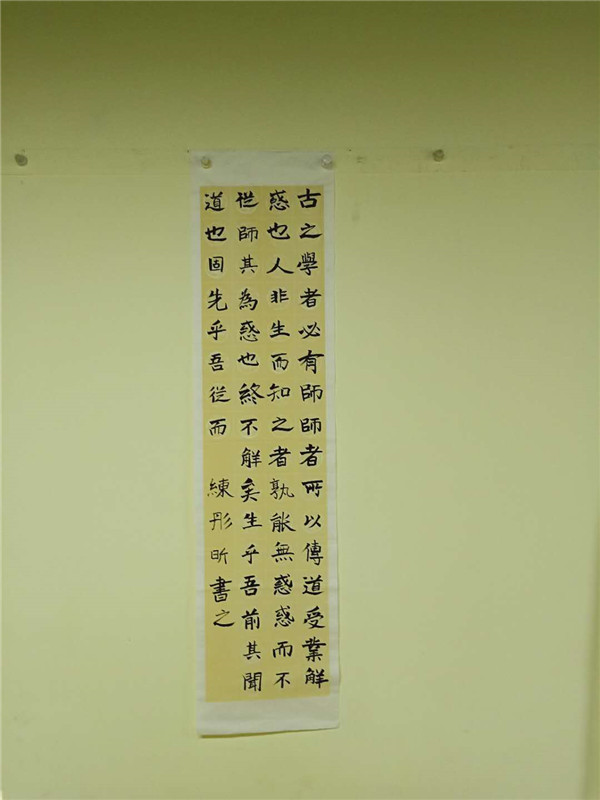 古之學者必有師師者所以傳道受業解
惑也人非生而知之者孰能無惑惑而不
從師其為惑也終不解矣生乎吾前其聞
道也固先乎吾從而 練彤昕書之